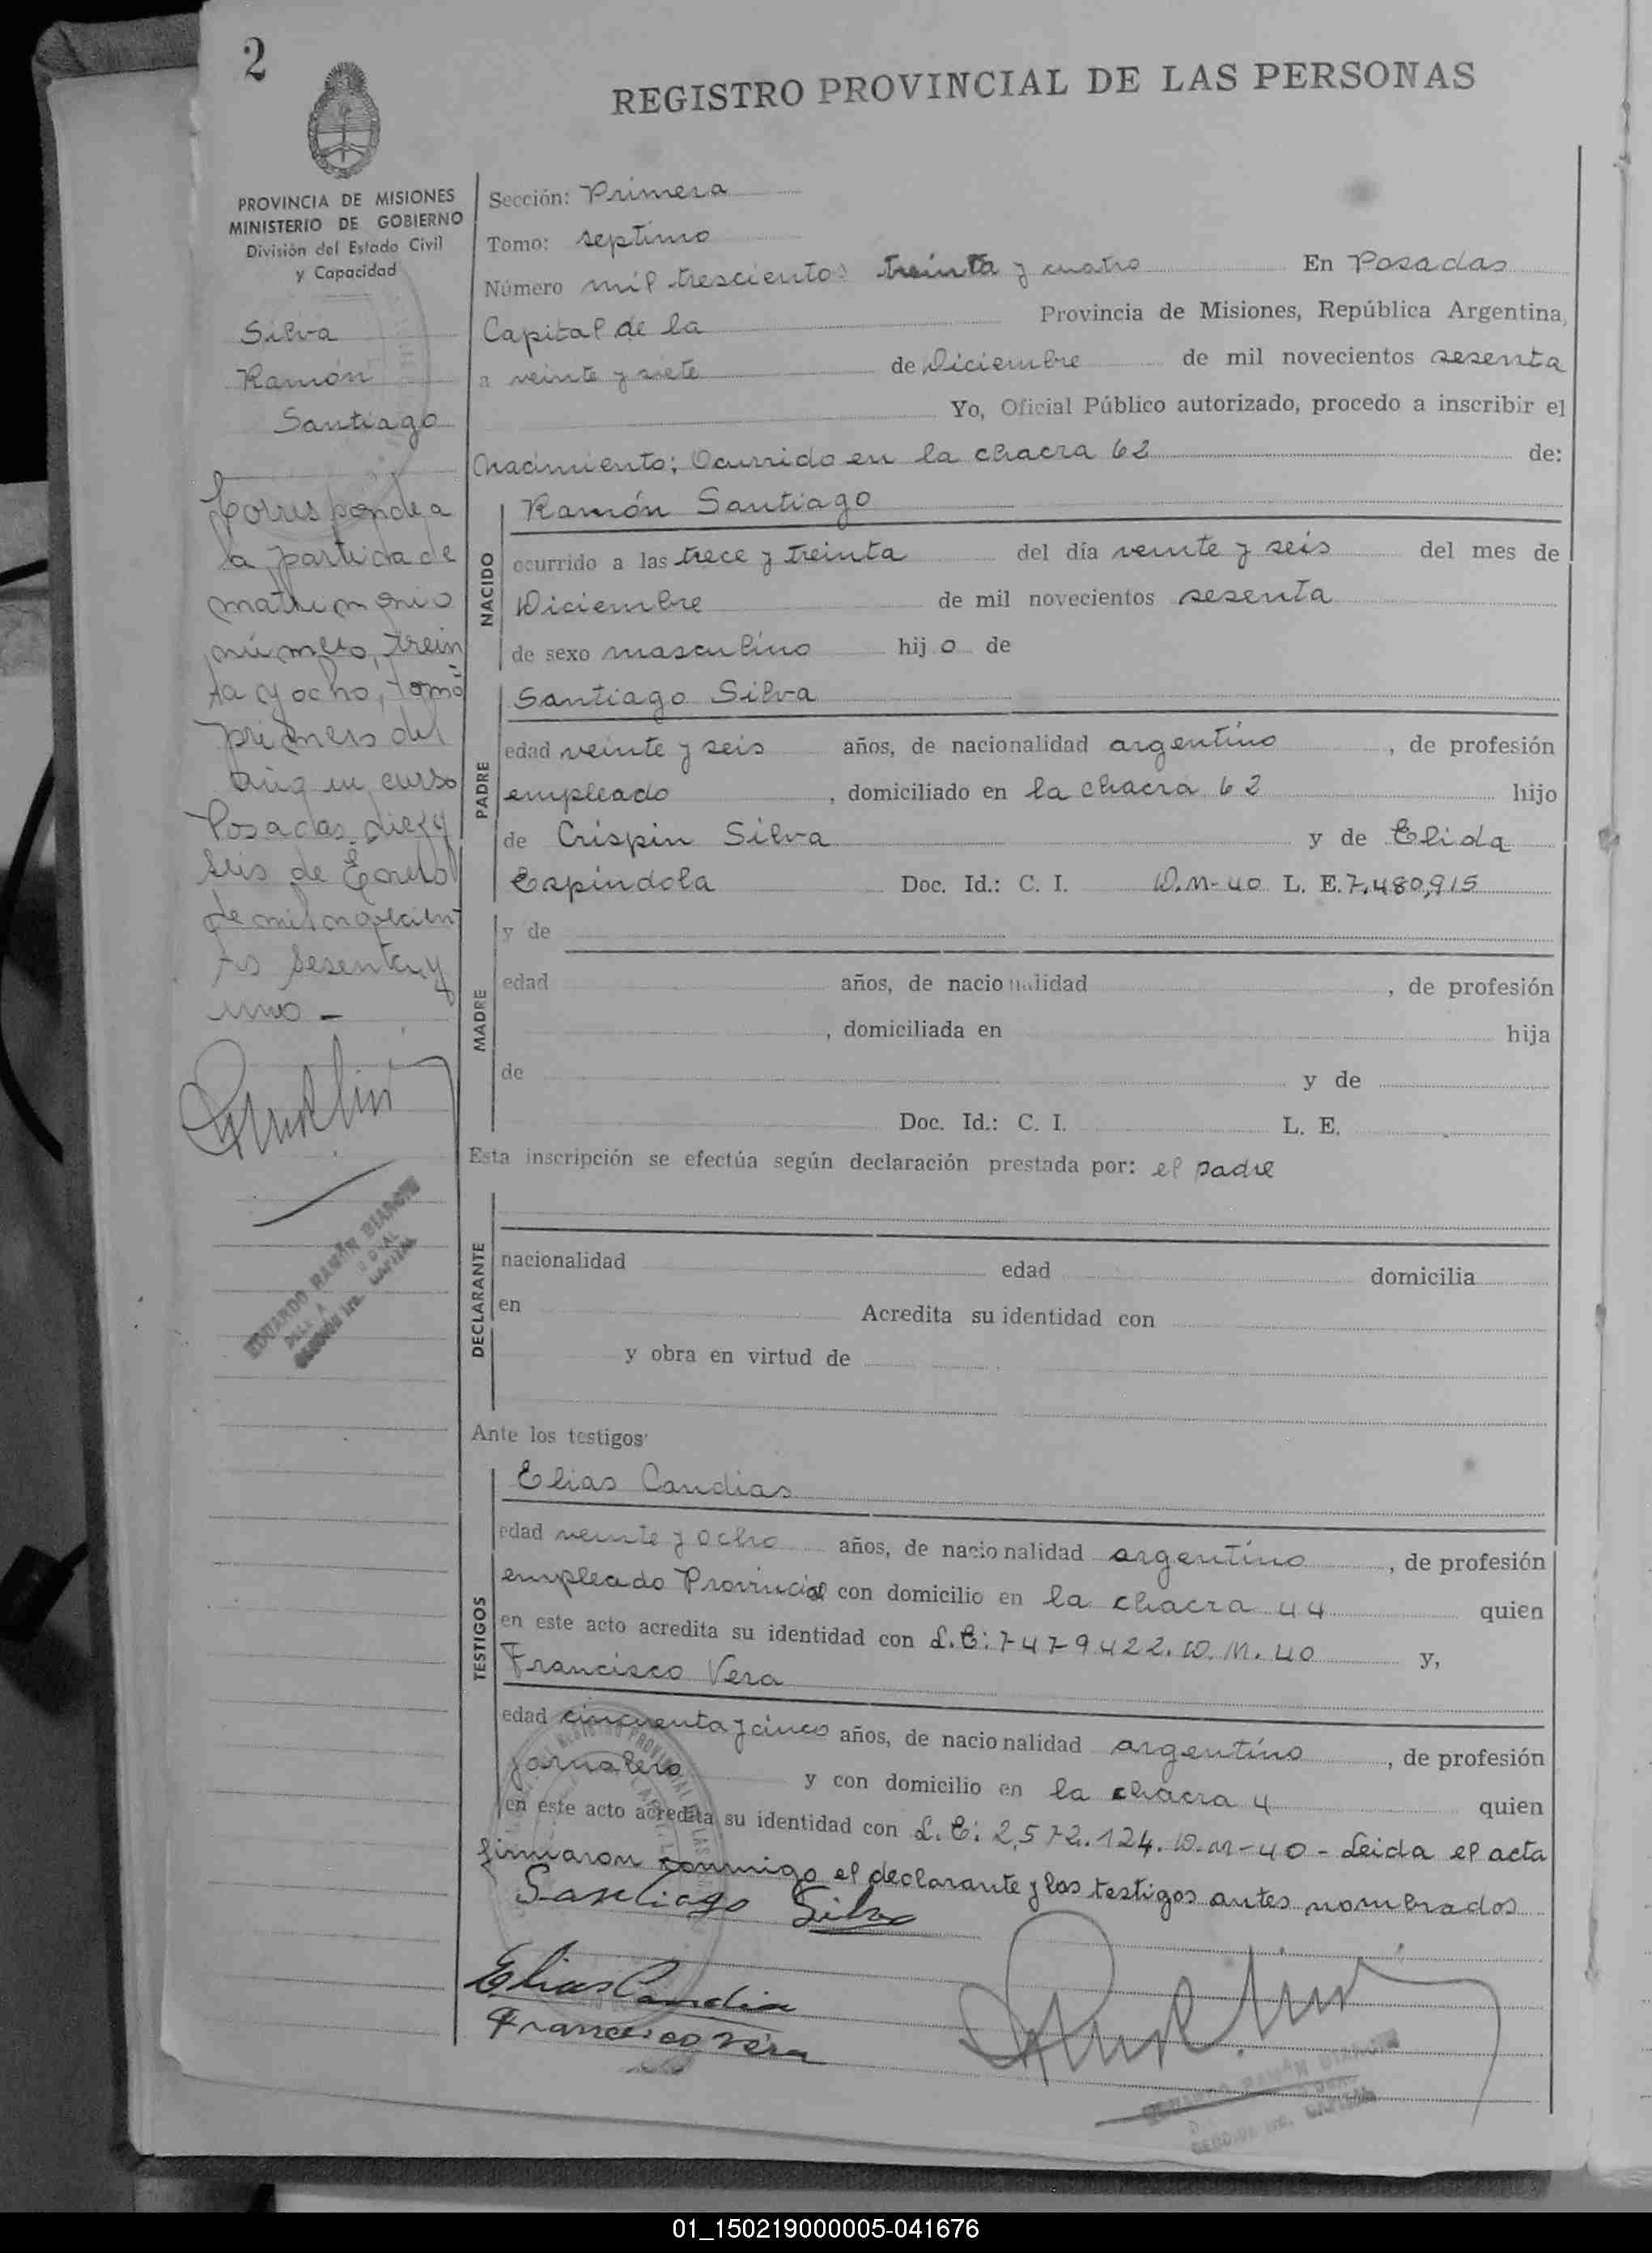 2
REGISTRO PROVINCIAL DE LAS PERSONAS
PROVINCIA DE MISIONES
MINISTERIO DE GOBIERNO
División del Estado Civil
y Capacidad
Silva
Ramón
Santiago
Corresponde a
la partida de
matrimonio
número, trein
ta y ocho, tomo
primero del
año en curso
Posadas, diez y
seis de Enero
de mil novecien
tos sesenta y
uno -
EDUARDO RAMÓN BIANCHI
Sección: Primera
Tomo: septimo
Número mil trescientos treinta y cuatro En Posadas
Capital de la Provincia de Misiones, República Argentina,
a veinte y siete de Diciembre de mil novecientos sesenta
Yo, Oficial Público autorizado, procedo a inscribir el
Nacimiento; Ocurrido en la chacra 62 de:
NACIDO
Ramón Santiago
ocurrido a las trece y treinta del día veinte y seis del mes de
Diciembre de mil novecientos sesenta
de sexo masculino hij o de
PADRE
Santiago Silva
edad veinte y seis años, de nacionalidad argentino , de profesión
empleado , domiciliado en la chacra 62 hijo
de Crispin Silva y de Elida
Espíndola Doc. Id.: C. I. D.M-40 L. E. 7.480,915
MADRE
y de
edad años, de nacionalidad , de profesión
, domiciliada en hija
de y de
Doc. Id.: C. I. L. E.
Esta inscripción se efectúa según declaración prestada por: el padre
DECLARANTE
nacionalidad edad domicilia
en Acredita su identidad con
y obra en virtud de
Ante los testigos
TESTIGOS
Elias Candias
edad veinte y ocho años, de nacionalidad argentino , de profesión
empleado Provincial con domicilio en la chacra 44 quien
en este acto acredita su identidad con L.E: 7479422. D.M. 40 y,
Francisco Vera
edad cincuenta y cinco años, de nacionalidad argentino , de profesión
jornalero y con domicilio en la chacra 4 quien
en este acto acredita su identidad con L.E: 2,572.124. D.M-40 - Leida el acta
firmaron conmigo el declarante y los testigos antes nombrados
Santiago Silva
Elias Candia
Francisco Vera
01_150219000005-041676